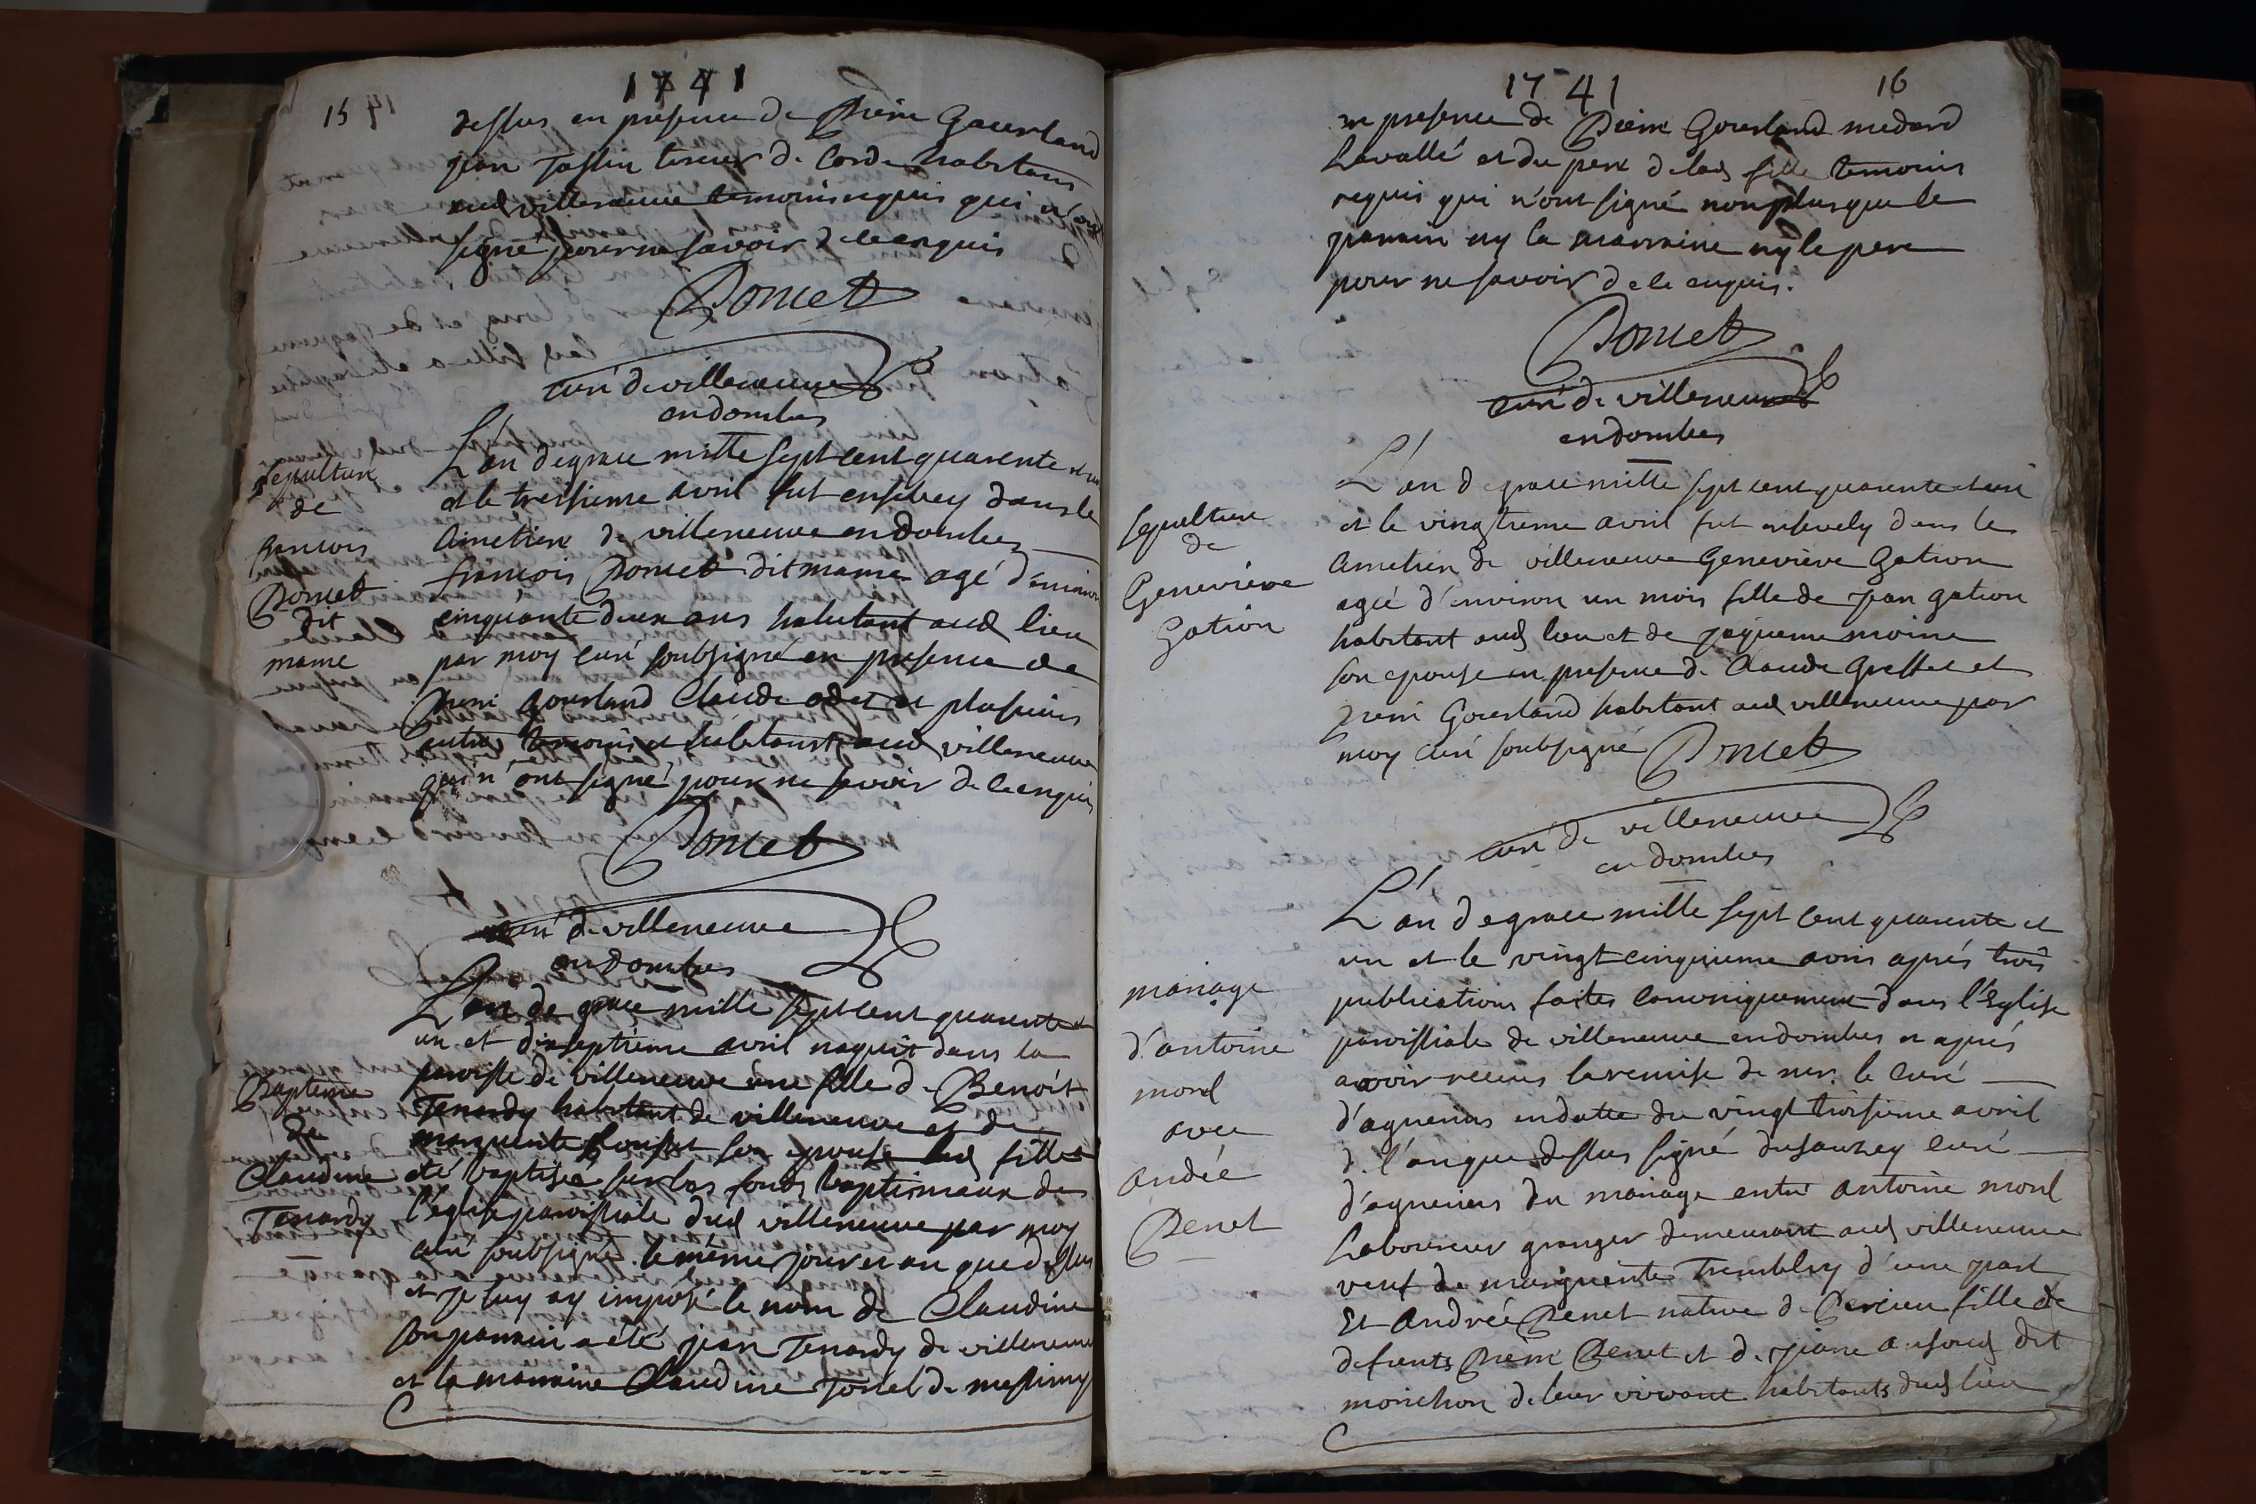 1741
15
dessus en presence de Pierre Gourland
jean Taslin tireur de corde habitans
aud villeneuve temoins requis qui n'ont
signé pour ne savoir de ce enquis
Poncet
curé de villeneuve
en dombes
Sepulture
de
francois
Poncet
dit
mame
L'an de grace mille sept cent quarente et un
et le tresieme avril fut ensevely dans le
cimetiere de villeneuve en dombes
françois Poncet dit mame agé d'environ
cinquante deux ans habitant aud lieu
par moy curé soubsigné en presence de
Pierre Gourland Claude odet et plusieurs
autres temoins et habitants aud villeneuve
qui n'ont signé pour ne savoir de ce enquis
Poncet
curé de villeneuve
en dombes
Bapteme
de
Claudine
Tenardy
L'an de grace mille sept cent quarente et
un et dixseptieme avril naquit dans la
paroisse de villeneuve une fille de Benoit
Tenardy habitant de villeneuve et de
marguerite son epouse lad fille a
été baptisée sur les fonds baptismaux de
l'église paroissiale dud villeneuve par moy
curé soubsigné le même jour et an que dessus
et je luy ay imposé le nom de Claudine
son parrain a été jean Tenardy de villeneuve
et la marraine Claudine de messimy
1741
16
en presence de Pierre Gourland medard
Lavallé et du pere de lad fille temoins
requis qui n'ont signé non plus que le
parrain ny la marraine ny le pere
pour ne savoir de ce enquis.
Poncet
curé de villeneuve
en dombes
sepulture
de
Genevieve
Gation
L'an de grace mille sept cent quarente et un
et le vingtieme avril fut ensevely dans le
cimetiere de villeneuve Geneviève Gation
agée d'environ un mois fille de jean gation
habitant aud lieu et de jaqueme moine
son epouse en presence de Claude Greffet et
pierre Gourland habitant aud villeneuve par
moy curé soubsigné Poncet
curé de villeneuve
en dombes
mariage
d'antoine
morel
avec
andée
Penet
L'an de grace mille sept cent quarente et
un et le vingt cinquieme avril après trois
publications faites canoniquement dans l'Eglise
paroissiale de villeneuve en dombes et après
avoir receus la remise de mr. le curé
d'agnerins en datte du vingt troisieme avril
de l'an que dessus signé dusauzey curé
d'agnerins du mariage entre antoine morel
Laboureur granger demeurant aud villeneuve
veuf de marguerite Trembley d'une part
Et Andrée Penet native de Percieu fille de
defunts Pierre Penet et de jeane dit
morichon de leur vivant habitants dud lieu